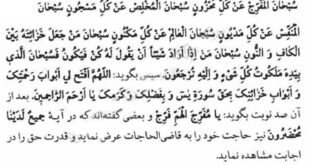 سُبْحَانَ الْمُفَرِّجِ عَنْ كُلِّ مَحْزُونٍ سُبْحَانَ الْمُخَلِّصِ عَنْ كُلِّ مَسْجُونٍ سُبْحَانَ
الْمُنَفِّسِ عَنْ كُلِّ مَدْيُونٍ سُبْحَانَ الْعَالِمِ عَنْ كُلِّ مَكْنُونٍ سُبْحَانَ مَنْ جَعَلَ خَزَائِنَهُ بَيْنَ
الْكَافِ وَ النُّونِ سُبْحَانَ مَنْ إِذَا أَرَادَ شَيْئاً أَنْ يَقُولَ لَهُ كُنْ فَيَكُونُ فَسُبْحَانَ الَّذِي
بِيَدِهِ مَلَكُوتُ كُلِّ شَيْءٍ وَ إِلَيْهِ تُرْجَعُونَ. سپس بگوید: اَللّهُمَّ افْتَحْ لِي أَبْوَابَ رَحْمَتِكَ
وَ أَبْوَابَ خَزَائِنِكَ بِحَقِّ سُورَةِ يس وَ بِفَضْلِكَ وَ كَرَمِكَ يَا أَرْحَمَ الرَّاحِمِينَ. بعد از
آن صد نوبت بگوید: يَا مُفَرِّجَ الْهَمِّ فَرِّجْ و بعضی گفته‌اند که در آیۀ جَمِيعٌ لَدَيْنَا
مُحْضَرُونَ نیز حاجت خود را به قاضی‌الحاجات عرض نماید و قدرت حق را در
اجابت مشاهده نماید.